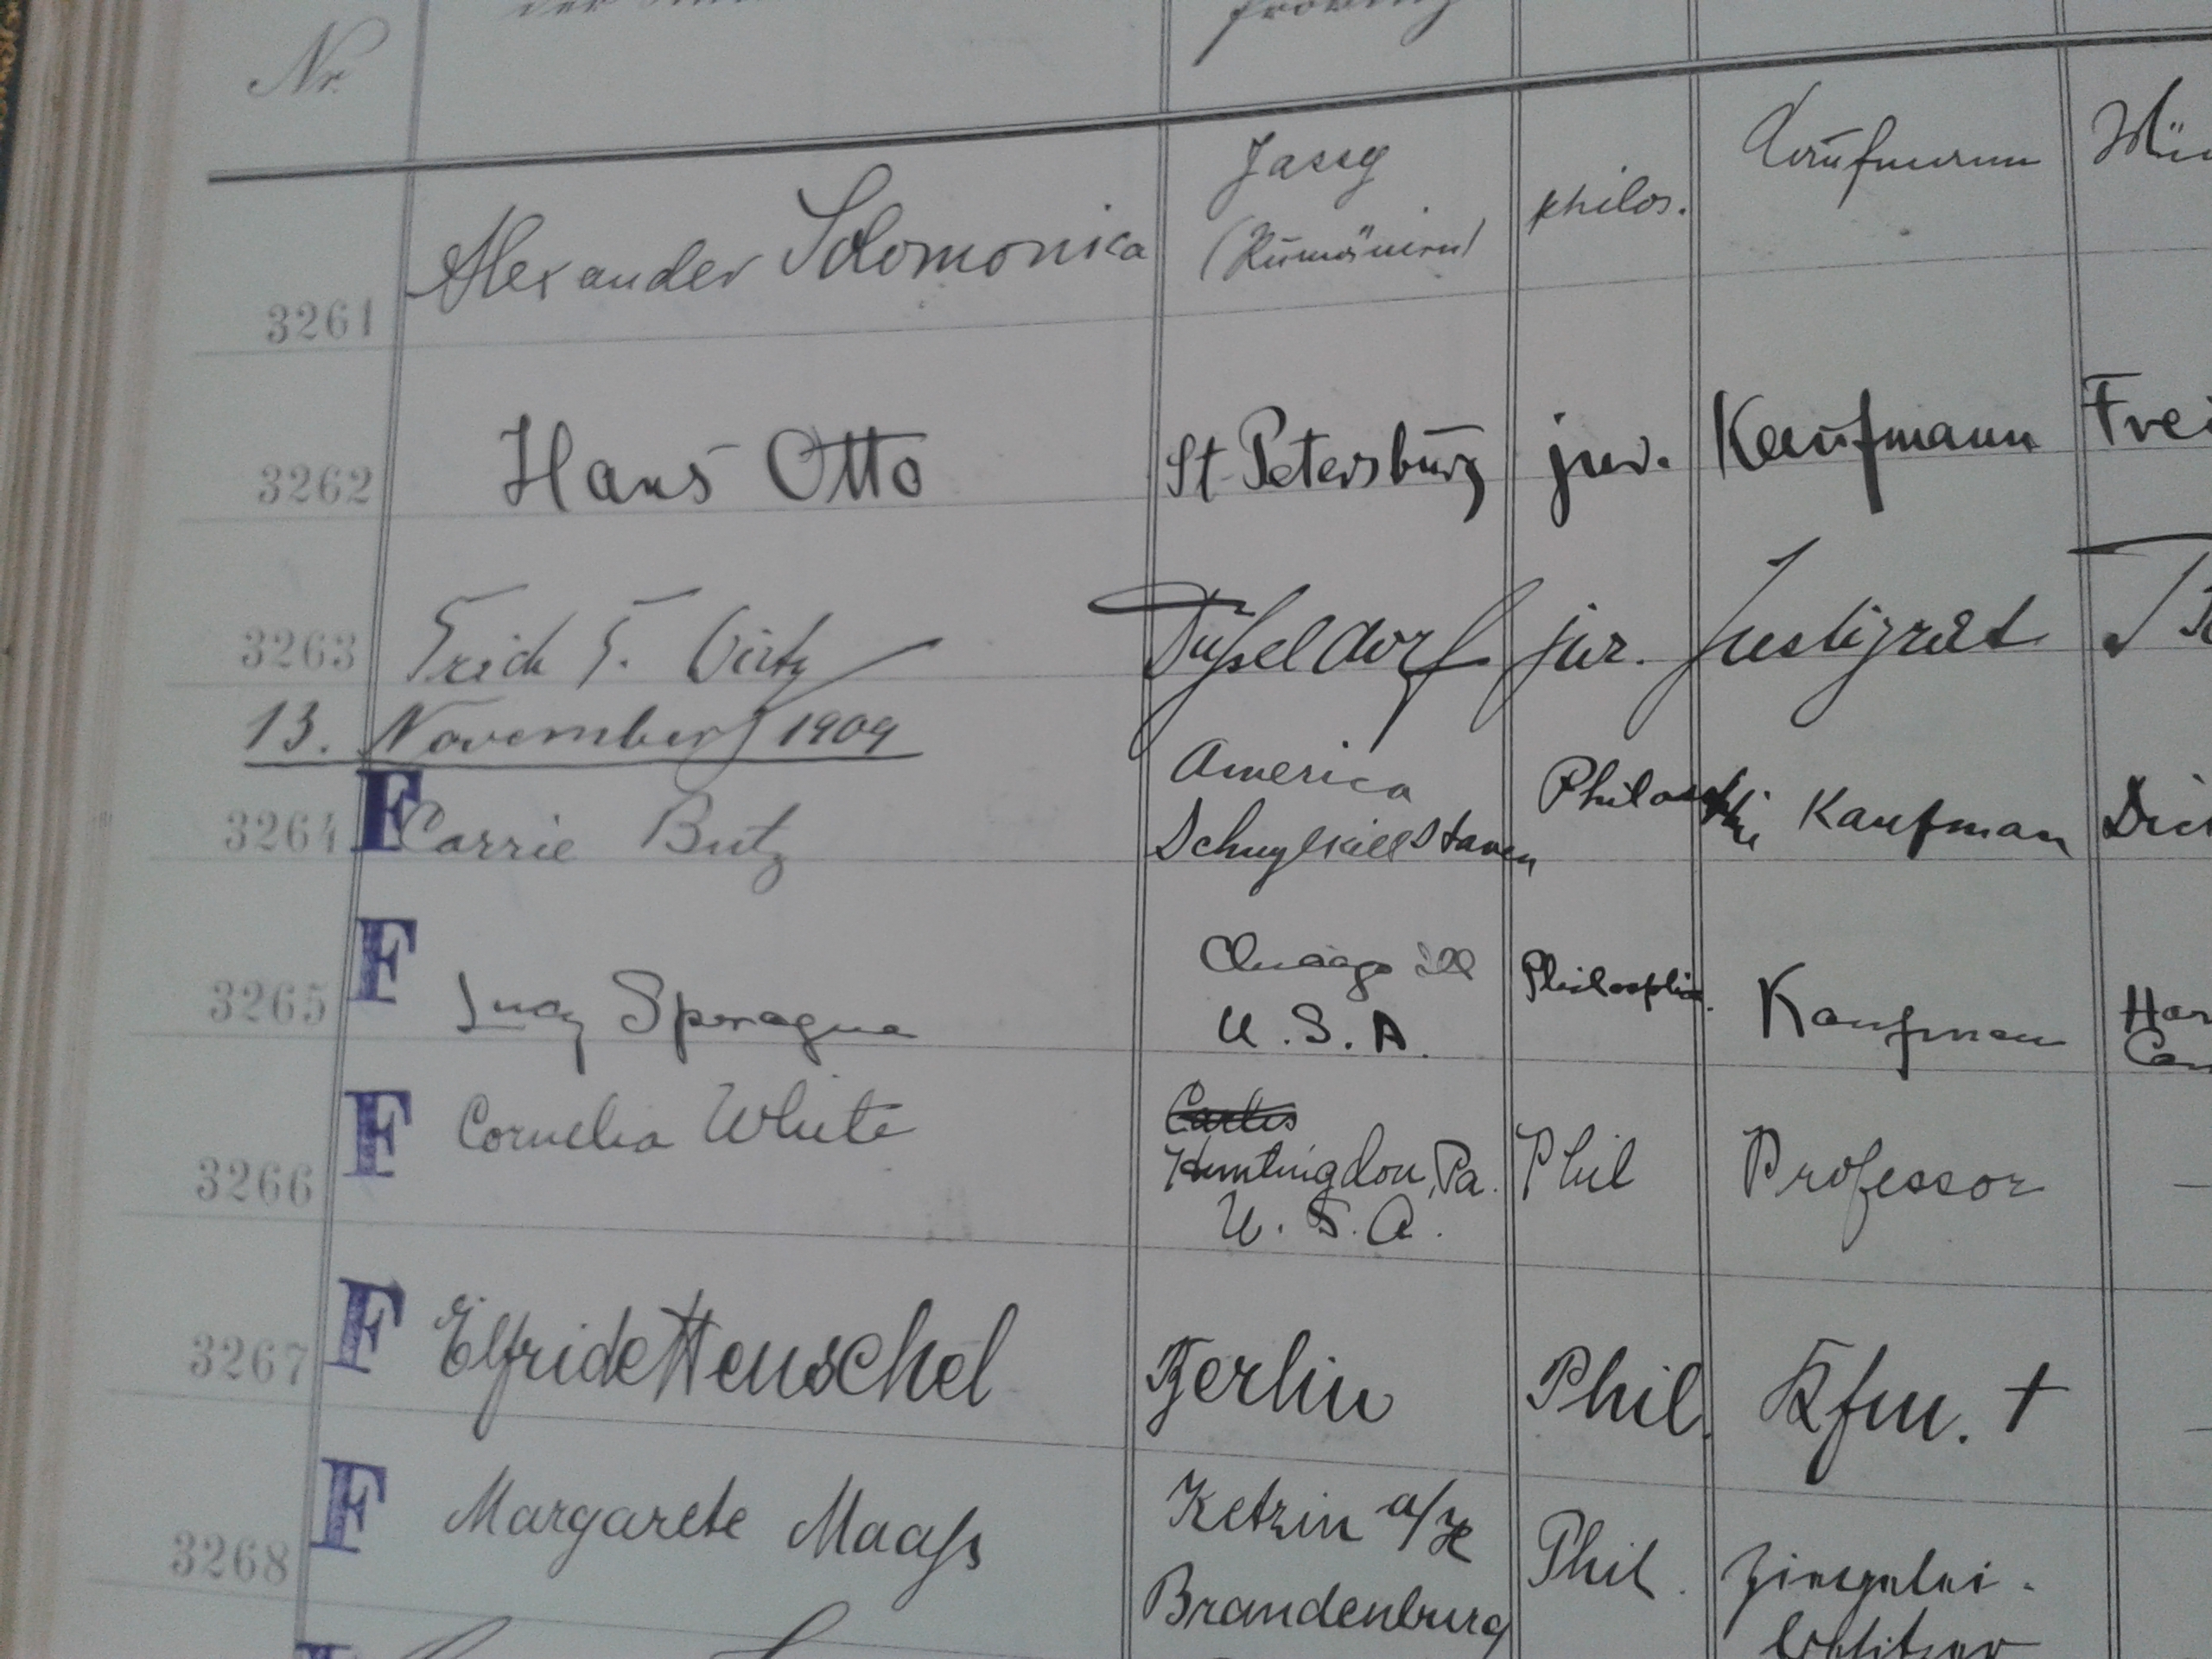 Nr.
3261 Alexander Solomonica Jassy (Rumänien) philos. Kaufmann
3262 Hans Otto St. Petersburg jur. Kaufmann Frei
3263 Erich F. Wirtz Düsseldorf jur. Justizrat
13. November 1909
3264 F Carrie Butz America Philosophie Kaufman
3265 F Lucy Sprague Chicago Ill U.S.A. Philosophie. Kaufman Har
3266 F Cornelia White Huntingdon, Pa. U.S.A. Phil Professor —
3267 F Elfride Henschel Berlin Phil. Kfm. † —
3268 F Margarete Maaß Ketzin a/H Brandenburg Phil. Ziegelei-
besitzer